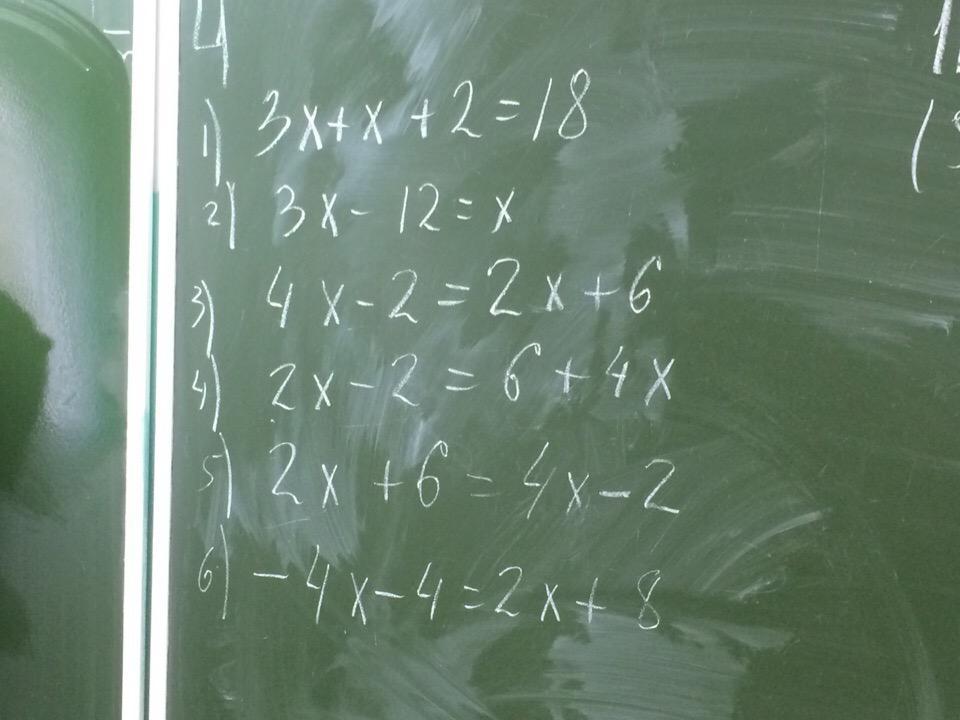 4
1) 3x+x+2=18
2) 3x-12=x
3) 4x-2=2x+6
4) 2x-2=6+4x
5) 2x+6=4x-2
6) -4x-4=2x+8